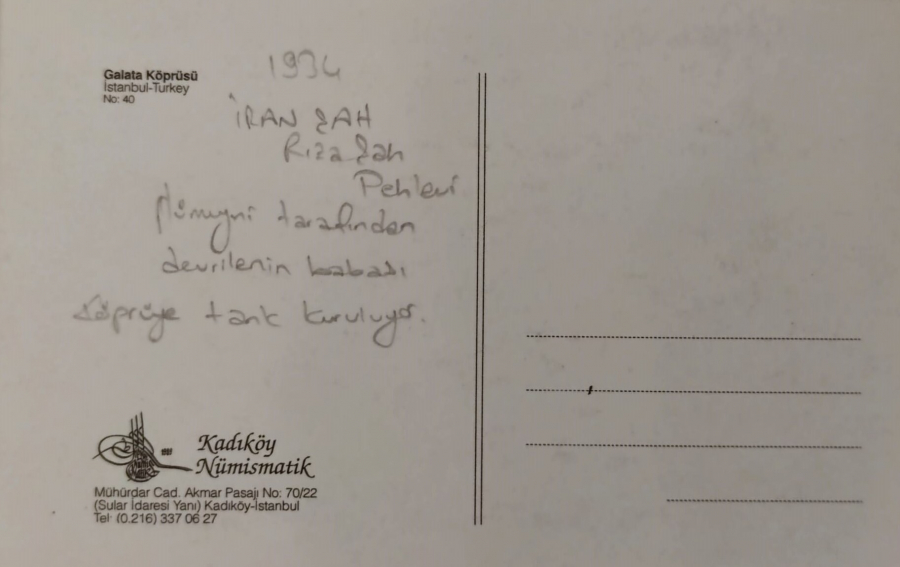 Galata Köprüsü
İstanbul-Turkey
No: 40
1934
İRAN ŞAH
Rıza Şah
Pehlevi
Humeyni tarafından
devrilenin babası
Köprüye tank kuruluyor.
Kadıköy
Nümismatik
Mühürdar Cad. Akmar Pasajı No: 70/22
(Sular İdaresi Yanı) Kadıköy-İstanbul
Tel: (0.216) 337 06 27